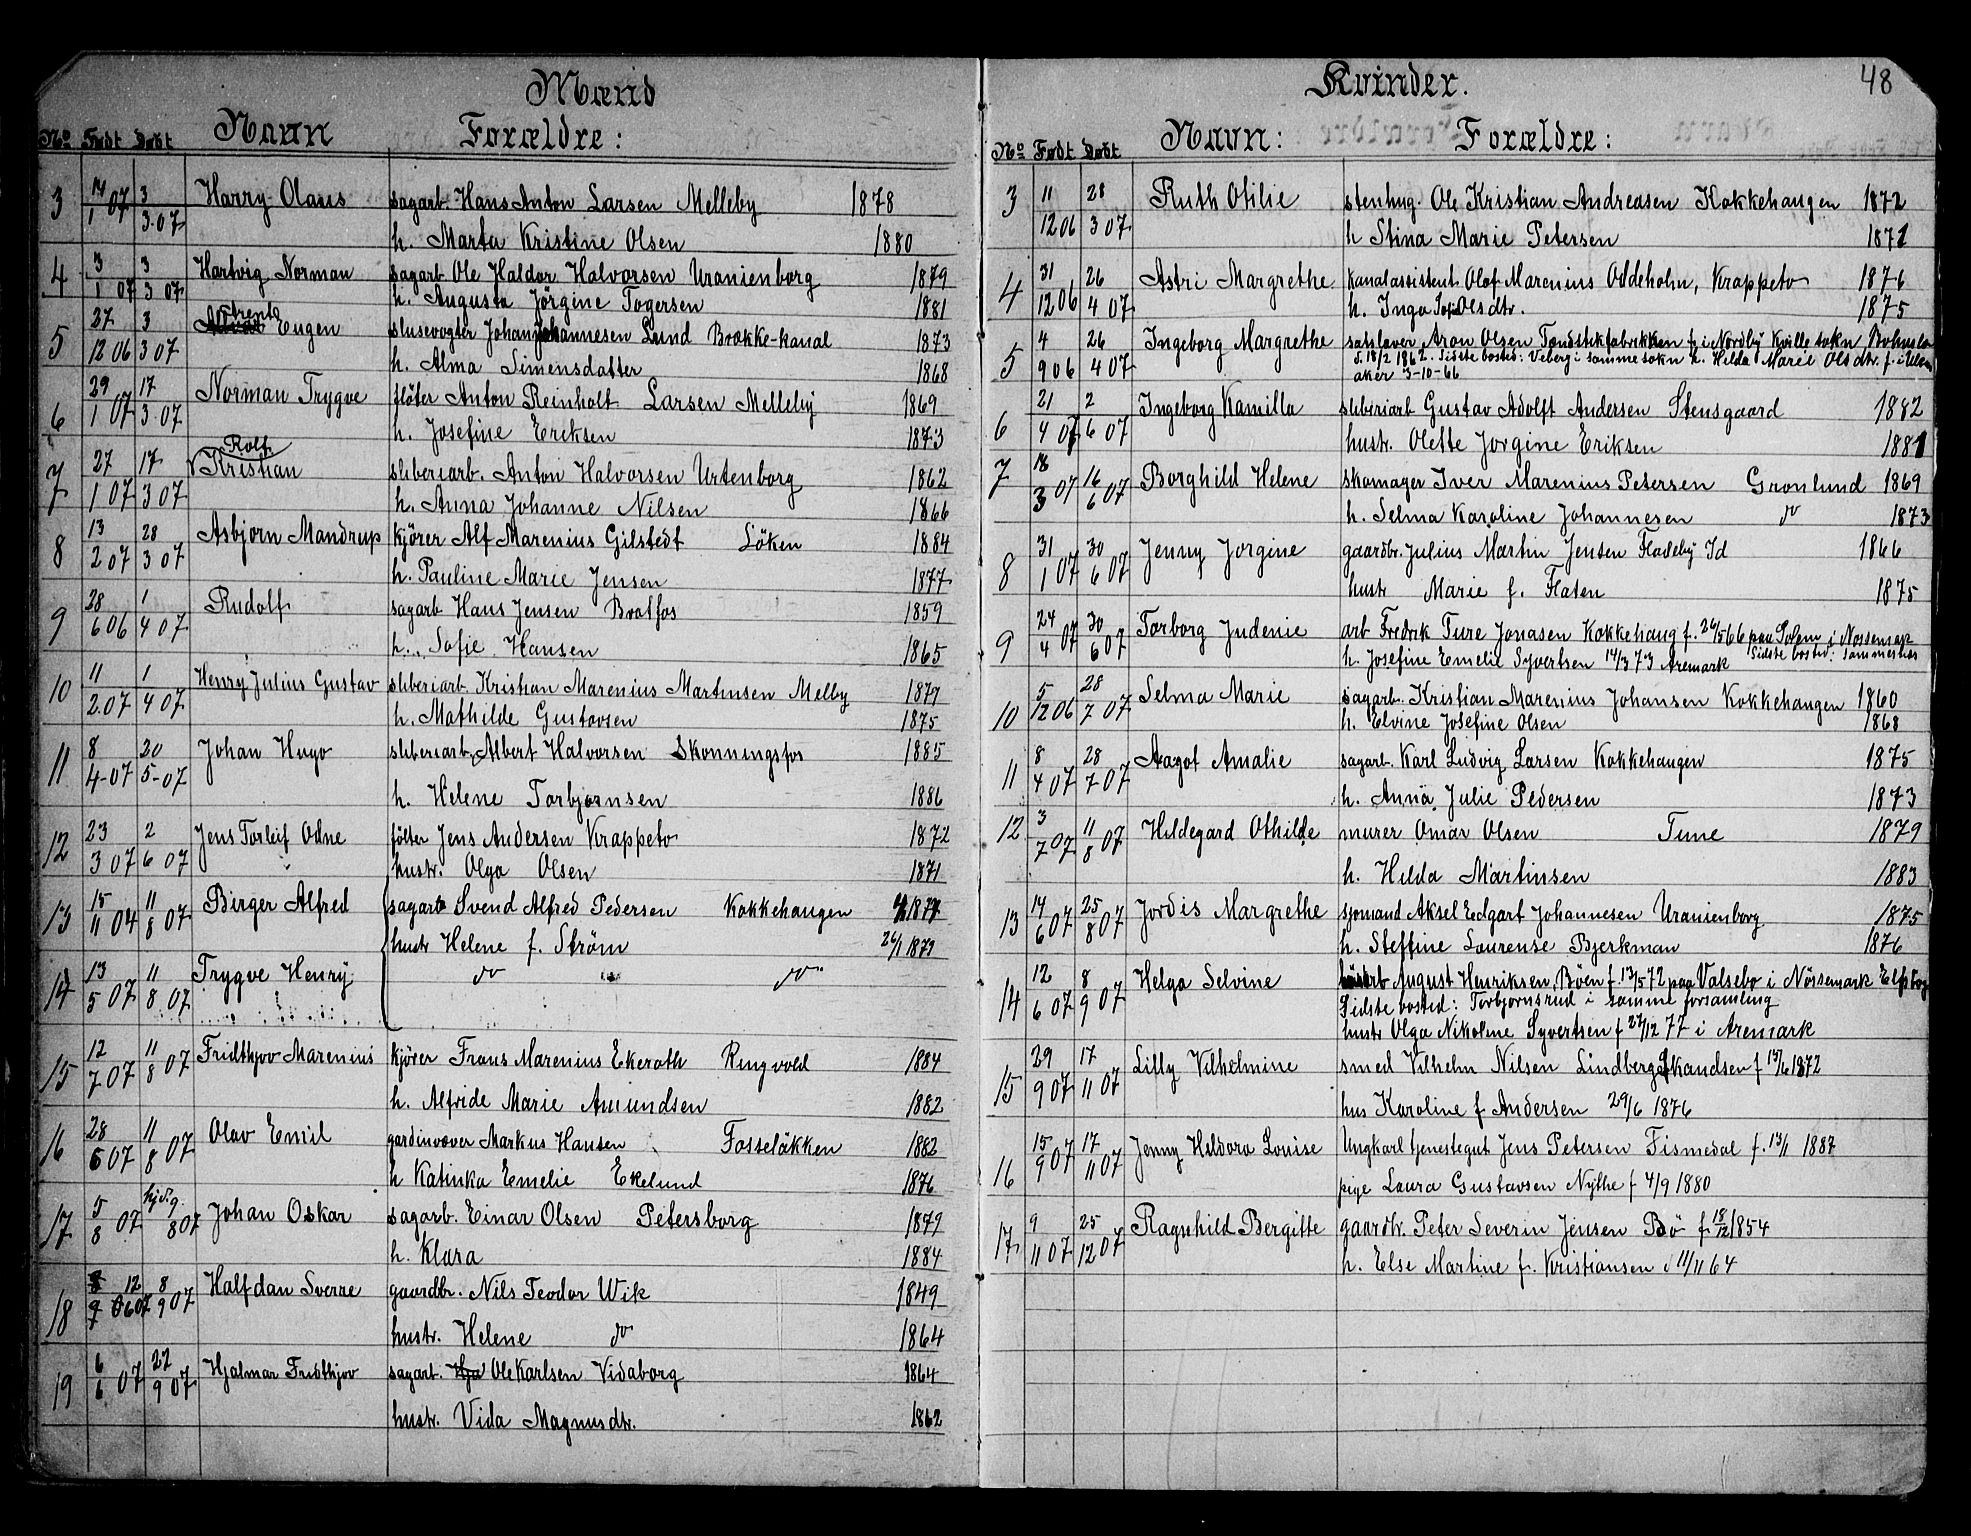 Mænd
No Født Døbt Navn Forældre:
3 14/1 07 3/3-07 Harry Olaus sagarb. Hans Anton Larsen Melleby 1878
h. Marta Kristine Olsen 1880
4 3/1 07 3/3 07 Hartvig Norman sagarb. Ole Haldor Halvorsen Uranienborg 1879
h. Augusta Jörgine Togersen 1881
5 27/12 06 3/3 07 Eugen slusevogter Johan Johannesen Lund Brække-kanal 1873
h. Alma Simensdatter 1868
6 29/1 07 17/3 07 Norman Trygve flöter Anton Reinholt Larsen Melleby 1869
h. Josefine Eriksen 1873
Rolf
7 27/1 07 17/3 07 Kristian sliberiarb. Anton Halvorsen Urtenborg 1862
h. Anna Johanne Nilsen 1866
8 13/2 07 28/3 07 Asbjørn Mandrup kjörer Alf Marenius Gilstedt Löken 1884
h. Pauline Marie Jensen 1877
9 28/6 06 1/4 07 Rudolf sagarb Hans Jensen Bratfos 1859
h. Sofie Hansen 1865
10 11/2 07 1/4 07 Henry Julius Gustav sliberiarb. Kristian Marenius Martinsen Melby 1877
h. Mathilde Gustavsen 1875
11 8/4-07 20/5-07 Johan Hugo sliberiarb. Albert Halvorsen Skonningsfos 1885
h. Helene Torbjørnsen 1886
12 23/3 07 2/6 07 Jens Torleif Odne fölter Jens Andersen Krappeto 1872
hustr. Olga Olsen 1871
13 15/11 04 11/8 07 Birger Alfred sagarb Svend Alfred Pedersen Kokkehaugen
hustr Helene f. Ström 26/1 1879
14 13/5 07 11/8 07 Trygve Henry do do
15 12/7 07 11/8 07 Fridthjov Marenius kjörer Frans Marenius Ekeroth Ringvold 1884
h. Alfride Marie Amundsen 1882
16 28/6 07 11/8 07 Olav Emil gardinvæver Markus Hansen Fosselökken 1882
h Katinka Emelie Ekelund 1876
17 5/8 07 hjd. 9/8 07 Johan Oskar sagarb. Einar Olsen Petersborg 1879
h. Klara 1884
18 8/9 07 Halfdan Sverre gaardbr. Nils Teodor Wik 1849
hustr. Helene do 1864
19 6/6 07 22/9 07 Hjalmar Fridthjov sagarb. Ole Karlsen Vidaborg 1864
hustr. Vida Magnusdtr. 1862
Kvinder. 48
No Født Døbt Navn: Forældre:
3 11/12 06 28/3 07 Ruth Otilie stenhug. Ole Kristian Andreasen Kokkehaugen 1872
h Stina Marie Petersen 1871
4 31/12 06 26/4 07 Astri Margrethe kanalassistent Olaf Marenius Oddeholm, Krappeto 1876
h. Inga Sofi Olsdtr. 1875
5 4/9 06 26/4 07 Ingeborg Margrethe Aron Olsen Tændstikfabrikken f. i Nordby Kville sokn Bohuslæ
f. 18/2 1862. Sidste bosted: Veberg i samme sokn h. Hilda Marie Olsdtr. f. i
aker 3-10-66
6 21/4 07 2/6 07 Ingeborg Kamilla sliberiarb Gustav Adolft Andersen Stensgaard 1882
hustr. Olette Jorgine Eriksen 1881
7 18/3 07 16/6 07 Borghild Helene skomager Iver Marenius Petersen Grønlund 1869
h. Selma Karoline Johannesen do 1873
8 31/1 07 30/6 07 Jenny Jorgine gaardbr. Julius Martin Jensen Fladeby Id 1866
hustr Marie f. Flaten 1875
9 24/4 07 30/6 07 Torborg Judenie arb Fredrik Ture Jonasen Kokkehaug f. 26/5 66 paa Solem i Nössemark
Sidste bosted: sammestds
h. Josefine Emelie Syvertsen 14/3 73 Aremark
10 5/12 06 28/7 07 Selma Marie sagarb. Kristian Marenius Johansen Kokkehaugen 1860
h. Elvine Josefine Olsen 1868
11 8/4 07 28/7 07 Aagot Amalie sagarb. Karl Ludvig Larsen Kokkehaugen 1875
h. Anna Julie Pedersen 1873
12 3/7 07 11/8 07 Hildegard Othilde murer Omar Olsen Tune 1879
h. Hilda Martinsen 1883
13 14/6 07 25/8 07 Jordis Margrethe sjömand Aksel Edgart Johannesen Uranienborg 1875
h. Steffine Laurense Bjerkman 1876
14 12/6 07 8/9 07 Helga Selvine August Henriksen, Böen f. 13/5 72 paa Valsebo i Nössemark
Sidste bosted: Torbjørnsrud i samme forsamling
hustr Olga Nikoline Syvertsen f 27/12 77 i Aremark
15 29/9 07 17/11 07 Lilly Vilhelmine smed Vilhelm Nilsen Lindberg Skandsen f 15/6 1872
hus Karoline f Andersen 29/6 1876
16 15/9 07 17/11 07 Jenny Heldora Louise Ungkarl tjenestegut Jens Petersen Fismedal f. 13/1 1887
pige Laura Gustavsen Nythe f 4/9 1880
17 9/11 07 25/12 07 Ragnhild Bergitte gaardbr. Peter Severin Jensen Bö f 18/12 1854
h. Else Martine f. Kristiansen 11/11 64